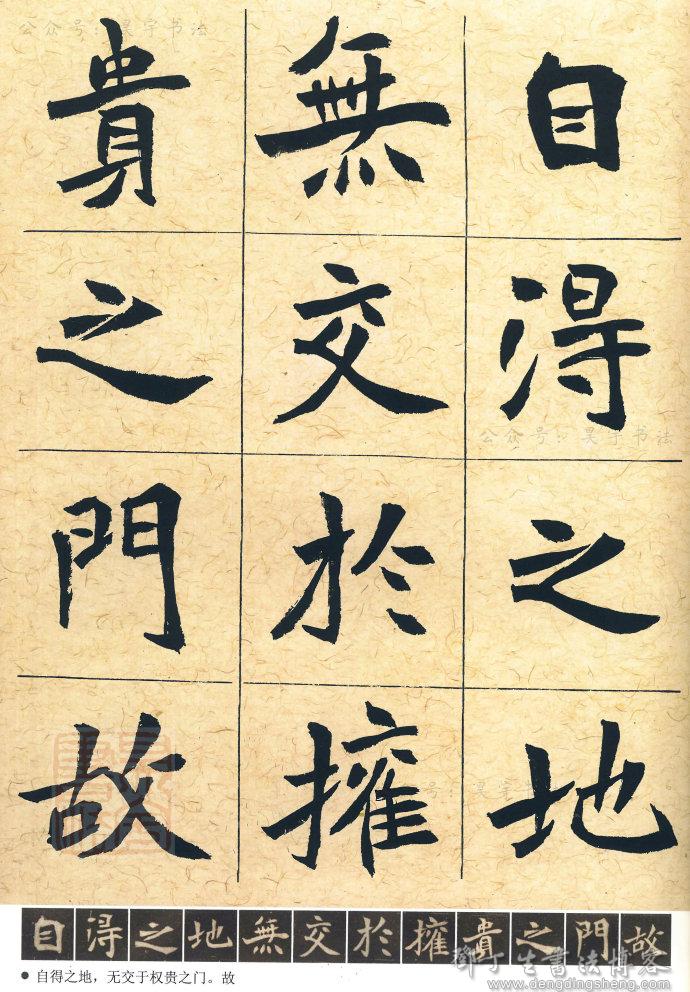 自得之地
無交於擁
貴之門故
自得之地無交於擁貴之門故
● 自得之地，无交于权贵之门。故
公众号：昊宇书法
公众号：昊宇书法
鄧丁生書法博客
www.dengdingsheng.com